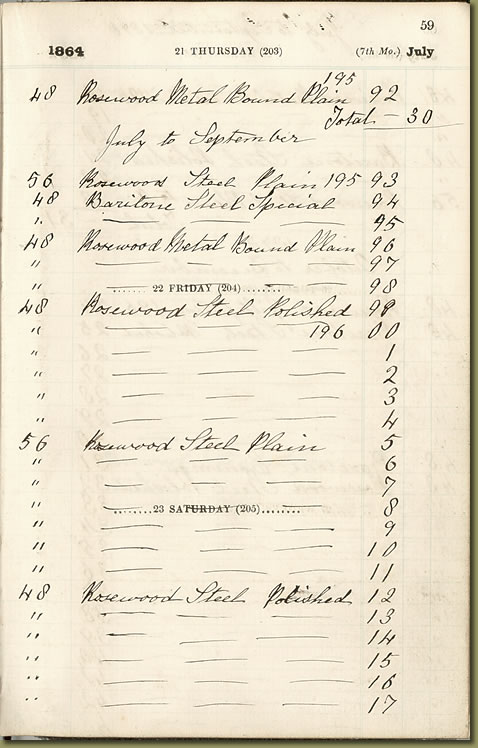 59
1864 21 THURSDAY (203) (7th Mo.) July
195
48 Rosewood Metal Bound Plain 92
Total - 30
July to September
56 Rosewood Steel Plain 195 93
48 Baritone Steel Special 94
" — — — 95
48 Rosewood Metal Bound Plain 96
" — — — 97
" — — — 98
22 FRIDAY (204)
48 Rosewood Steel Polished 99
" — — 196 00
" — — — 1
" — — — 2
" — — — 3
" — — — 4
56 Rosewood Steel Plain 5
" — — — 6
" — — — 7
" — — — 8
23 SATURDAY (205)
" — — — 9
" — — — 10
" — — — 11
48 Rosewood Steel Polished 12
" — — — 13
" — — — 14
" — — — 15
" — — — 16
" — — — 17